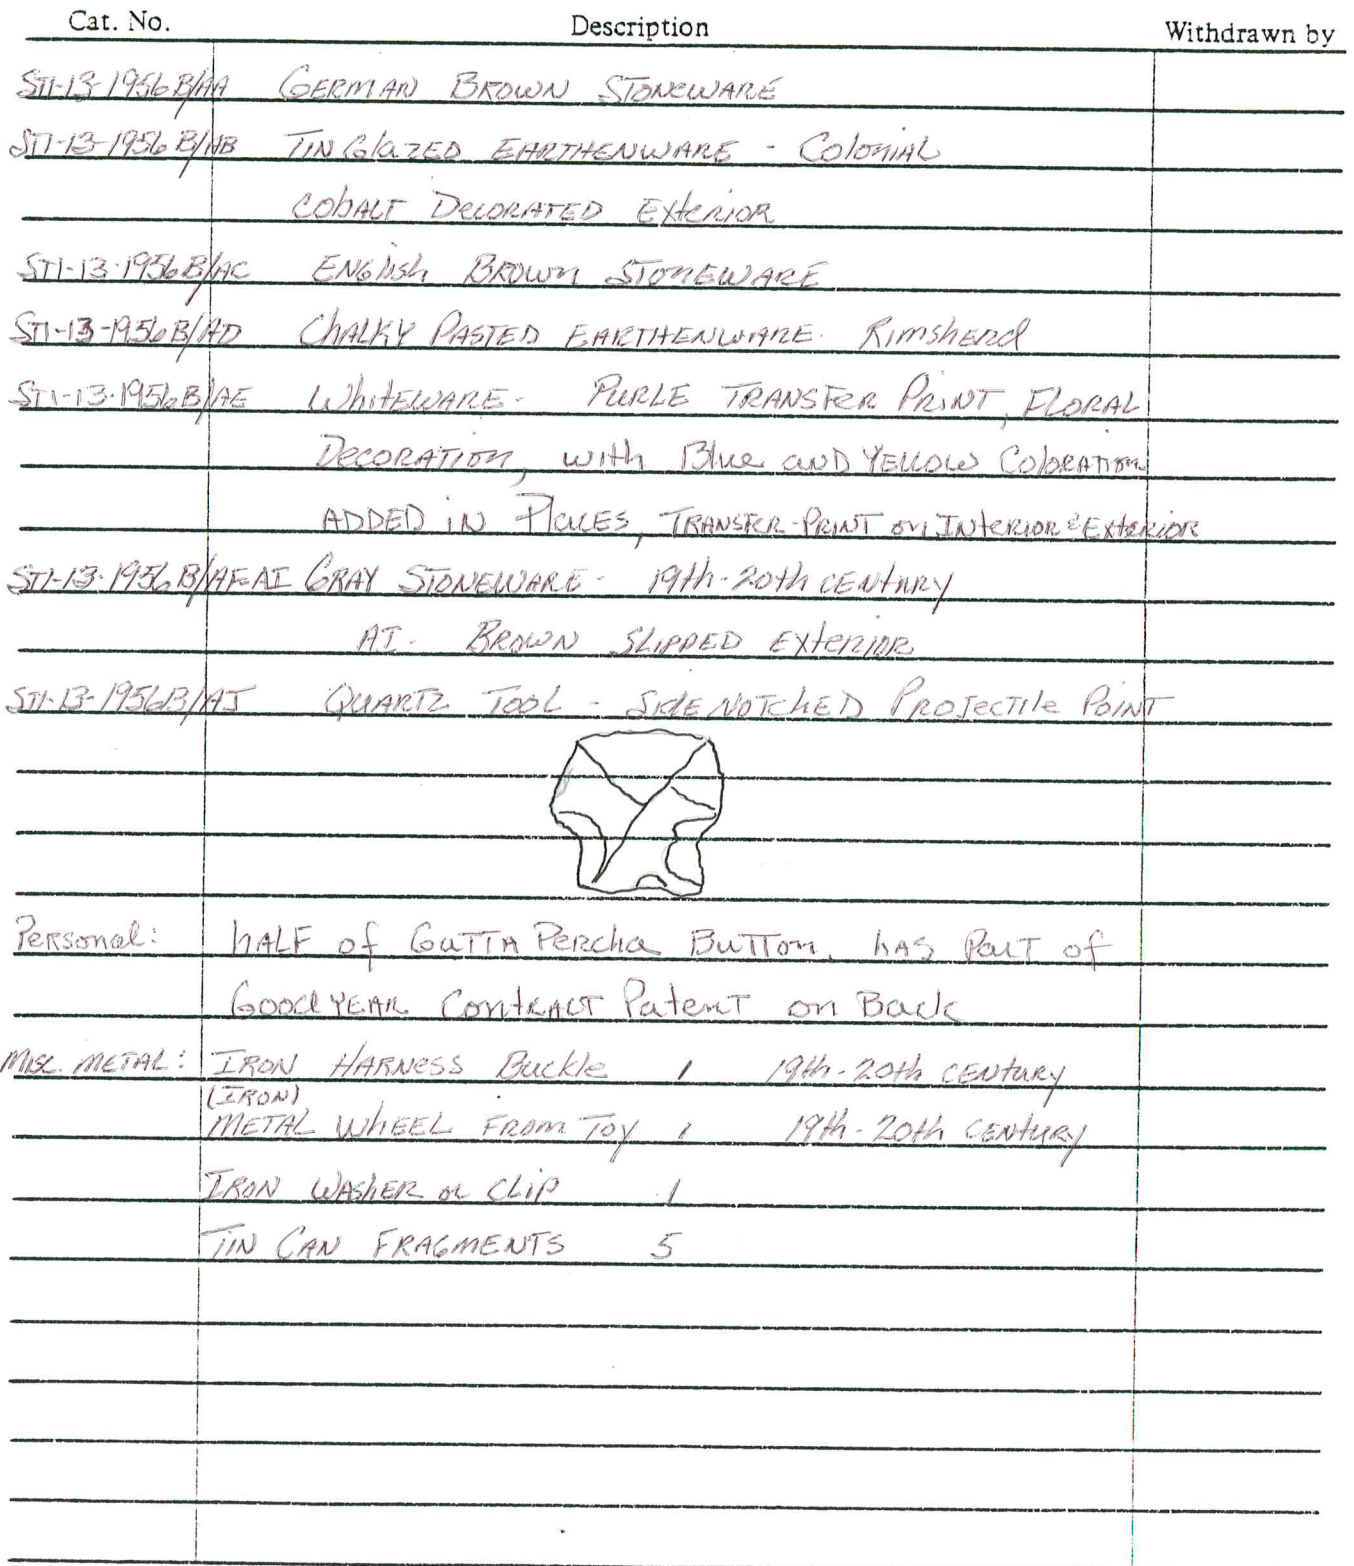 Cat. No. Description Withdrawn by
ST1-13-1956B/AA GERMAN BROWN STONEWARE
ST1-13-1956B/AB TIN GLAZED EARTHENWARE - COLONIAL
COBALT DECORATED EXTERIOR
ST1-13-1956B/AC ENGLISH BROWN STONEWARE
ST1-13-1956B/AD CHALKY PASTED EARTHENWARE. RIMSHERD
ST1-13-1956B/AE WHITEWARE - PURLE TRANSFER PRINT, FLORAL
DECORATION, with Blue AND YELLOW COLORATION
ADDED IN PLACES, TRANSFER-PRINT ON INTERIOR & EXTERIOR
ST1-13-1956B/AF-AI GRAY STONEWARE - 19th-20th CENTURY
AI - BROWN SLIPPED EXTERIOR
ST1-13-1956B/AJ QUARTZ TOOL - SIDE NOTCHED PROJECTILE POINT
Personal: HALF of GUTTA PERCHA BUTTON, HAS PART of
GOODYEAR CONTRACT PATENT on BACK
MISC. METAL: IRON HARNESS Buckle 1 19th-20th CENTURY
(IRON)
METAL WHEEL FROM TOY 1 19th-20th CENTURY
IRON WASHER or CLIP 1
TIN CAN FRAGMENTS 5